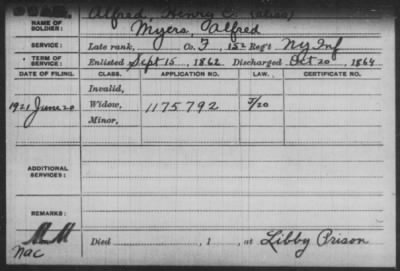 Alfred, Henry (alias)
NAME OF SOLDIER: Myers, Alfred
SERVICE: Late rank, Co. F, 15 Reg't NY Inf
TERM OF SERVICE: Enlisted Sept 15, 1862 Discharged Oct 20, 1864
DATE OF FILING. CLASS. APPLICATION NO. LAW. CERTIFICATE NO.
Invalid,
1921 June 20 Widow, 1175792 7/20
Minor,
ADDITIONAL SERVICES:
REMARKS:
Died , 1 , at Libby Prison
nac